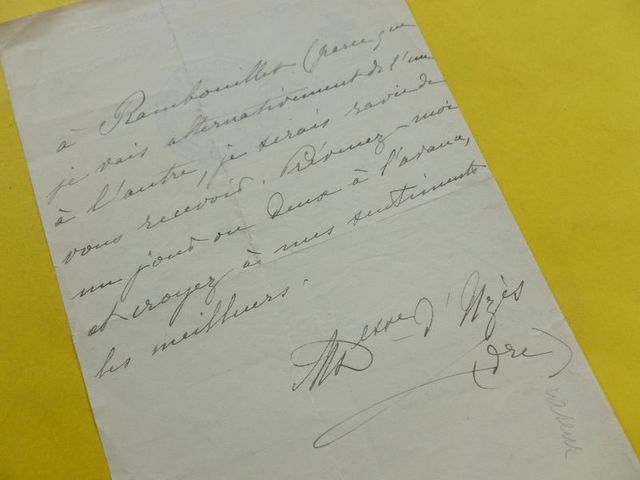 à Rambouillet (parce que
je vais alternativement de l'un
à l'autre, je serais ravie de
vous recevoir. Prévenez-moi
un jour ou deux à l'avance,
et croyez à mes sentiments
les meilleurs.
Desse d'Uzès
(dre)